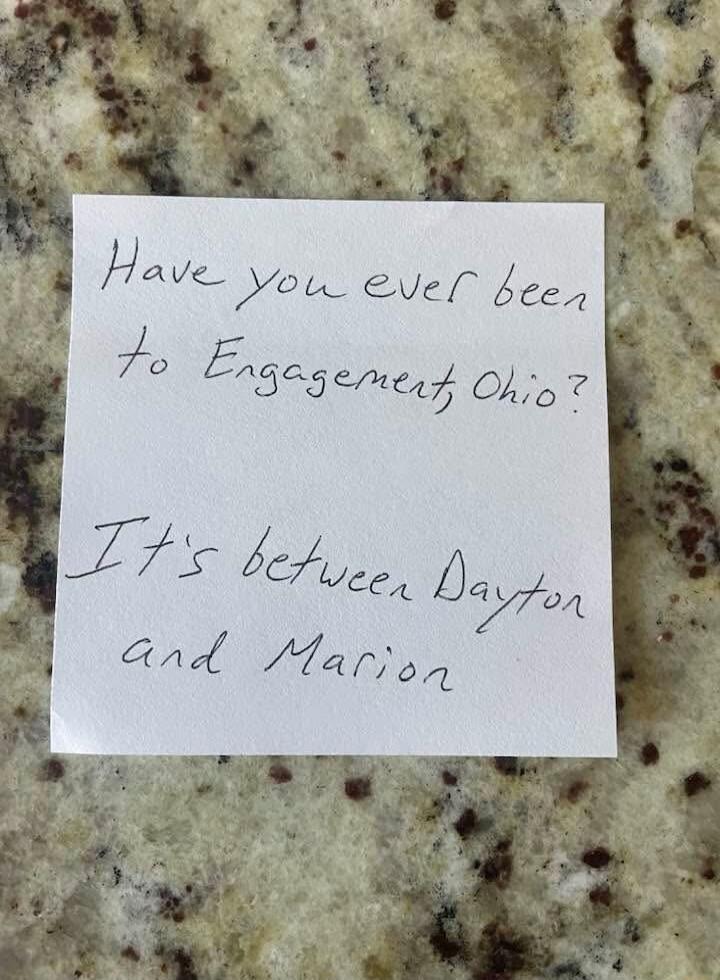 Have you ever been
to Engagement, Ohio?
It's between Dayton
and Marion